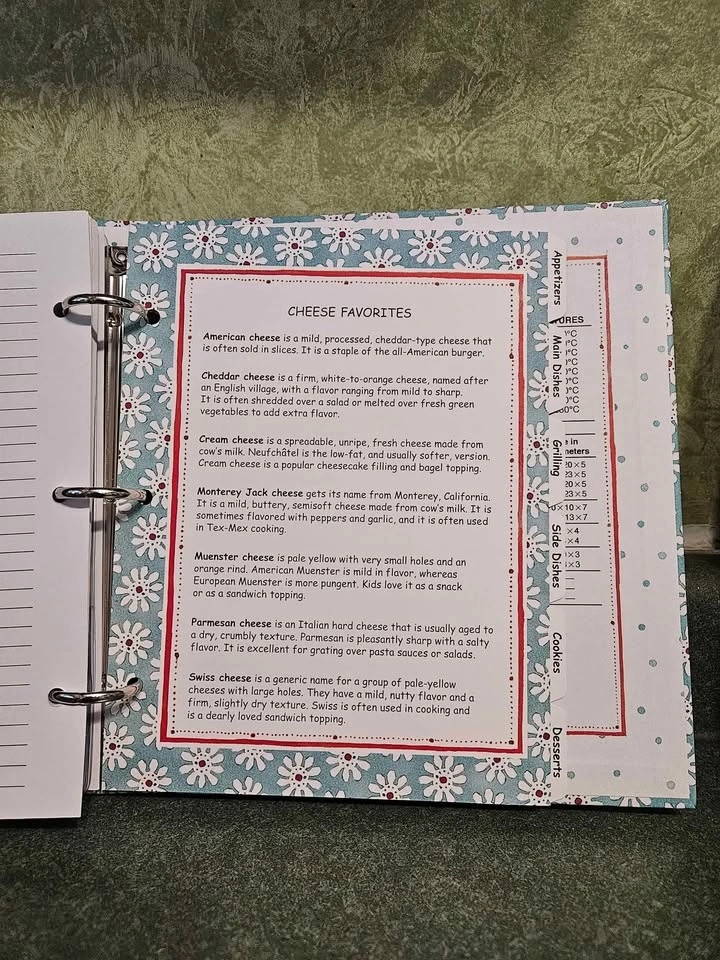 CHEESE FAVORITES
American cheese is a mild, processed, cheddar-type cheese that
is often sold in slices. It is a staple of the all-American burger.
Cheddar cheese is a firm, white-to-orange cheese, named after
an English village, with a flavor ranging from mild to sharp.
It is often shredded over a salad or melted over fresh green
vegetables to add extra flavor.
Cream cheese is a spreadable, unripe, fresh cheese made from
cow's milk. Neufchâtel is the low-fat, and usually softer, version.
Cream cheese is a popular cheesecake filling and bagel topping.
Monterey Jack cheese gets its name from Monterey, California.
It is a mild, buttery, semisoft cheese made from cow's milk. It is
sometimes flavored with peppers and garlic, and it is often used
in Tex-Mex cooking.
Muenster cheese is pale yellow with very small holes and an
orange rind. American Muenster is mild in flavor, whereas
European Muenster is more pungent. Kids love it as a snack
or as a sandwich topping.
Parmesan cheese is an Italian hard cheese that is usually aged to
a dry, crumbly texture. Parmesan is pleasantly sharp with a salty
flavor. It is excellent for grating over pasta sauces or salads.
Swiss cheese is a generic name for a group of pale-yellow
cheeses with large holes. They have a mild, nutty flavor and a
firm, slightly dry texture. Swiss is often used in cooking and
is a dearly loved sandwich topping.
Appetizers
Main Dishes
Grilling
Side Dishes
Cookies
Desserts
in
20×5
23×5
20×5
23×5
×10×7
13×7
×4
×4
×3
×3